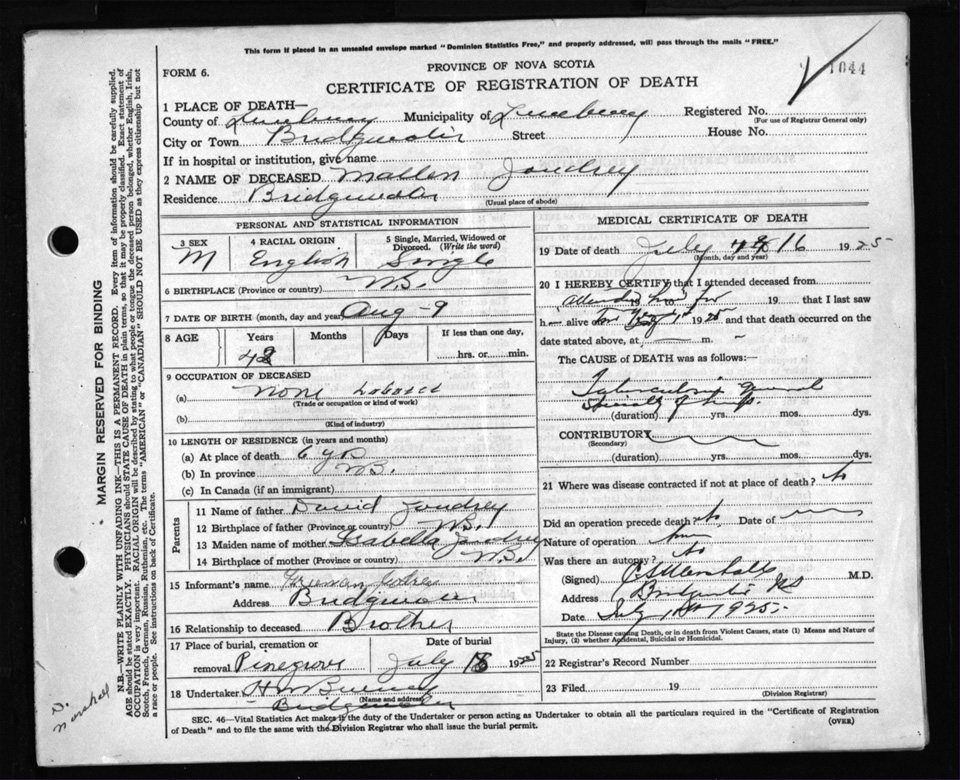 This form if placed in an unsealed envelope marked "Dominion Statistics Free," and properly addressed, will pass through the mails "FREE."
1044
FORM 6.
PROVINCE OF NOVA SCOTIA
CERTIFICATE OF REGISTRATION OF DEATH
1 PLACE OF DEATH—
County of Lunenburg Municipality of Lunenburg Registered No.
(For use of Registrar General only)
City or Town Bridgewater Street House No.
If in hospital or institution, give name
2 NAME OF DECEASED Joudrey
Residence Bridgewater
(Usual place of abode)
PERSONAL AND STATISTICAL INFORMATION
3 SEX 4 RACIAL ORIGIN 5 Single, Married, Widowed or Divorced. (Write the word)
M English Single
6 BIRTHPLACE (Province or country)
7 DATE OF BIRTH (month, day and year) Aug - 9
8 AGE Years Months Days If less than one day,
hrs. or min.
9 OCCUPATION OF DECEASED
(a) None
(Trade or occupation or kind of work)
(b)
(Kind of industry)
10 LENGTH OF RESIDENCE (in years and months)
(a) At place of death 6 yrs
(b) In province
(c) In Canada (if an immigrant)
Parents
11 Name of father David Joudrey
12 Birthplace of father (Province or country)
13 Maiden name of mother Isabella Joudrey
14 Birthplace of mother (Province or country)
15 Informant's name
Address Bridgewater
16 Relationship to deceased Brother
17 Place of burial, cremation or removal Pinegrove Date of burial July 1925
18 Undertaker
(Name and address)
Bridgewater
MEDICAL CERTIFICATE OF DEATH
19 Date of death July 16 1925
(Month, day and year)
20 I HEREBY CERTIFY that I attended deceased from
19 that I last saw
h alive 1925 and that death occurred on the
date stated above, at m.
The CAUSE OF DEATH was as follows:—
Tuberculosis general
(duration) yrs. mos. dys.
CONTRIBUTORY
(Secondary)
(duration) yrs. mos. dys.
21 Where was disease contracted if not at place of death? No
Did an operation precede death? No Date of
Nature of operation
Was there an autopsy? No
(Signed) M.D.
Address
Date July 1925
State the Disease causing Death, or in death from Violent Causes, state (1) Means and Nature of Injury, (2) whether Accidental, Suicidal or Homicidal.
22 Registrar's Record Number
23 Filed 19
(Division Registrar)
SEC. 46—Vital Statistics Act makes it the duty of the Undertaker or person acting as Undertaker to obtain all the particulars required in the "Certificate of Registration
of Death" and to file the same with the Division Registrar who shall issue the burial permit.
(OVER)
MARGIN RESERVED FOR BINDING
N.B.—WRITE PLAINLY, WITH UNFADING INK—THIS IS A PERMANENT RECORD. Every item of information should be carefully supplied.
AGE should be stated EXACTLY. PHYSICIANS should STATE CAUSE OF DEATH in plain terms, so that it may be properly classified. Exact statement of
OCCUPATION is very important. RACIAL ORIGIN will be described by stating to what people or tongue the deceased person belonged, whether English, Irish,
Scotch, French, German, Russian, Ruthenian, etc. The terms "AMERICAN" or "CANADIAN" SHOULD NOT BE USED as they express citizenship but not
a race or people. See instructions on back of Certificate.
D. Marshall